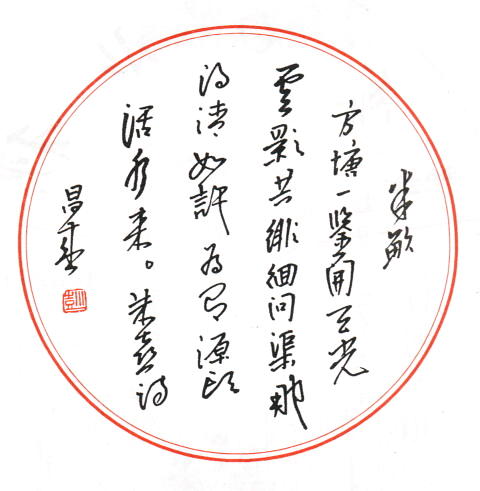 半畝
方塘一鑒開天光
雲影共徘徊問渠那
得清如許為有源頭
活水来。朱熹詩
昌